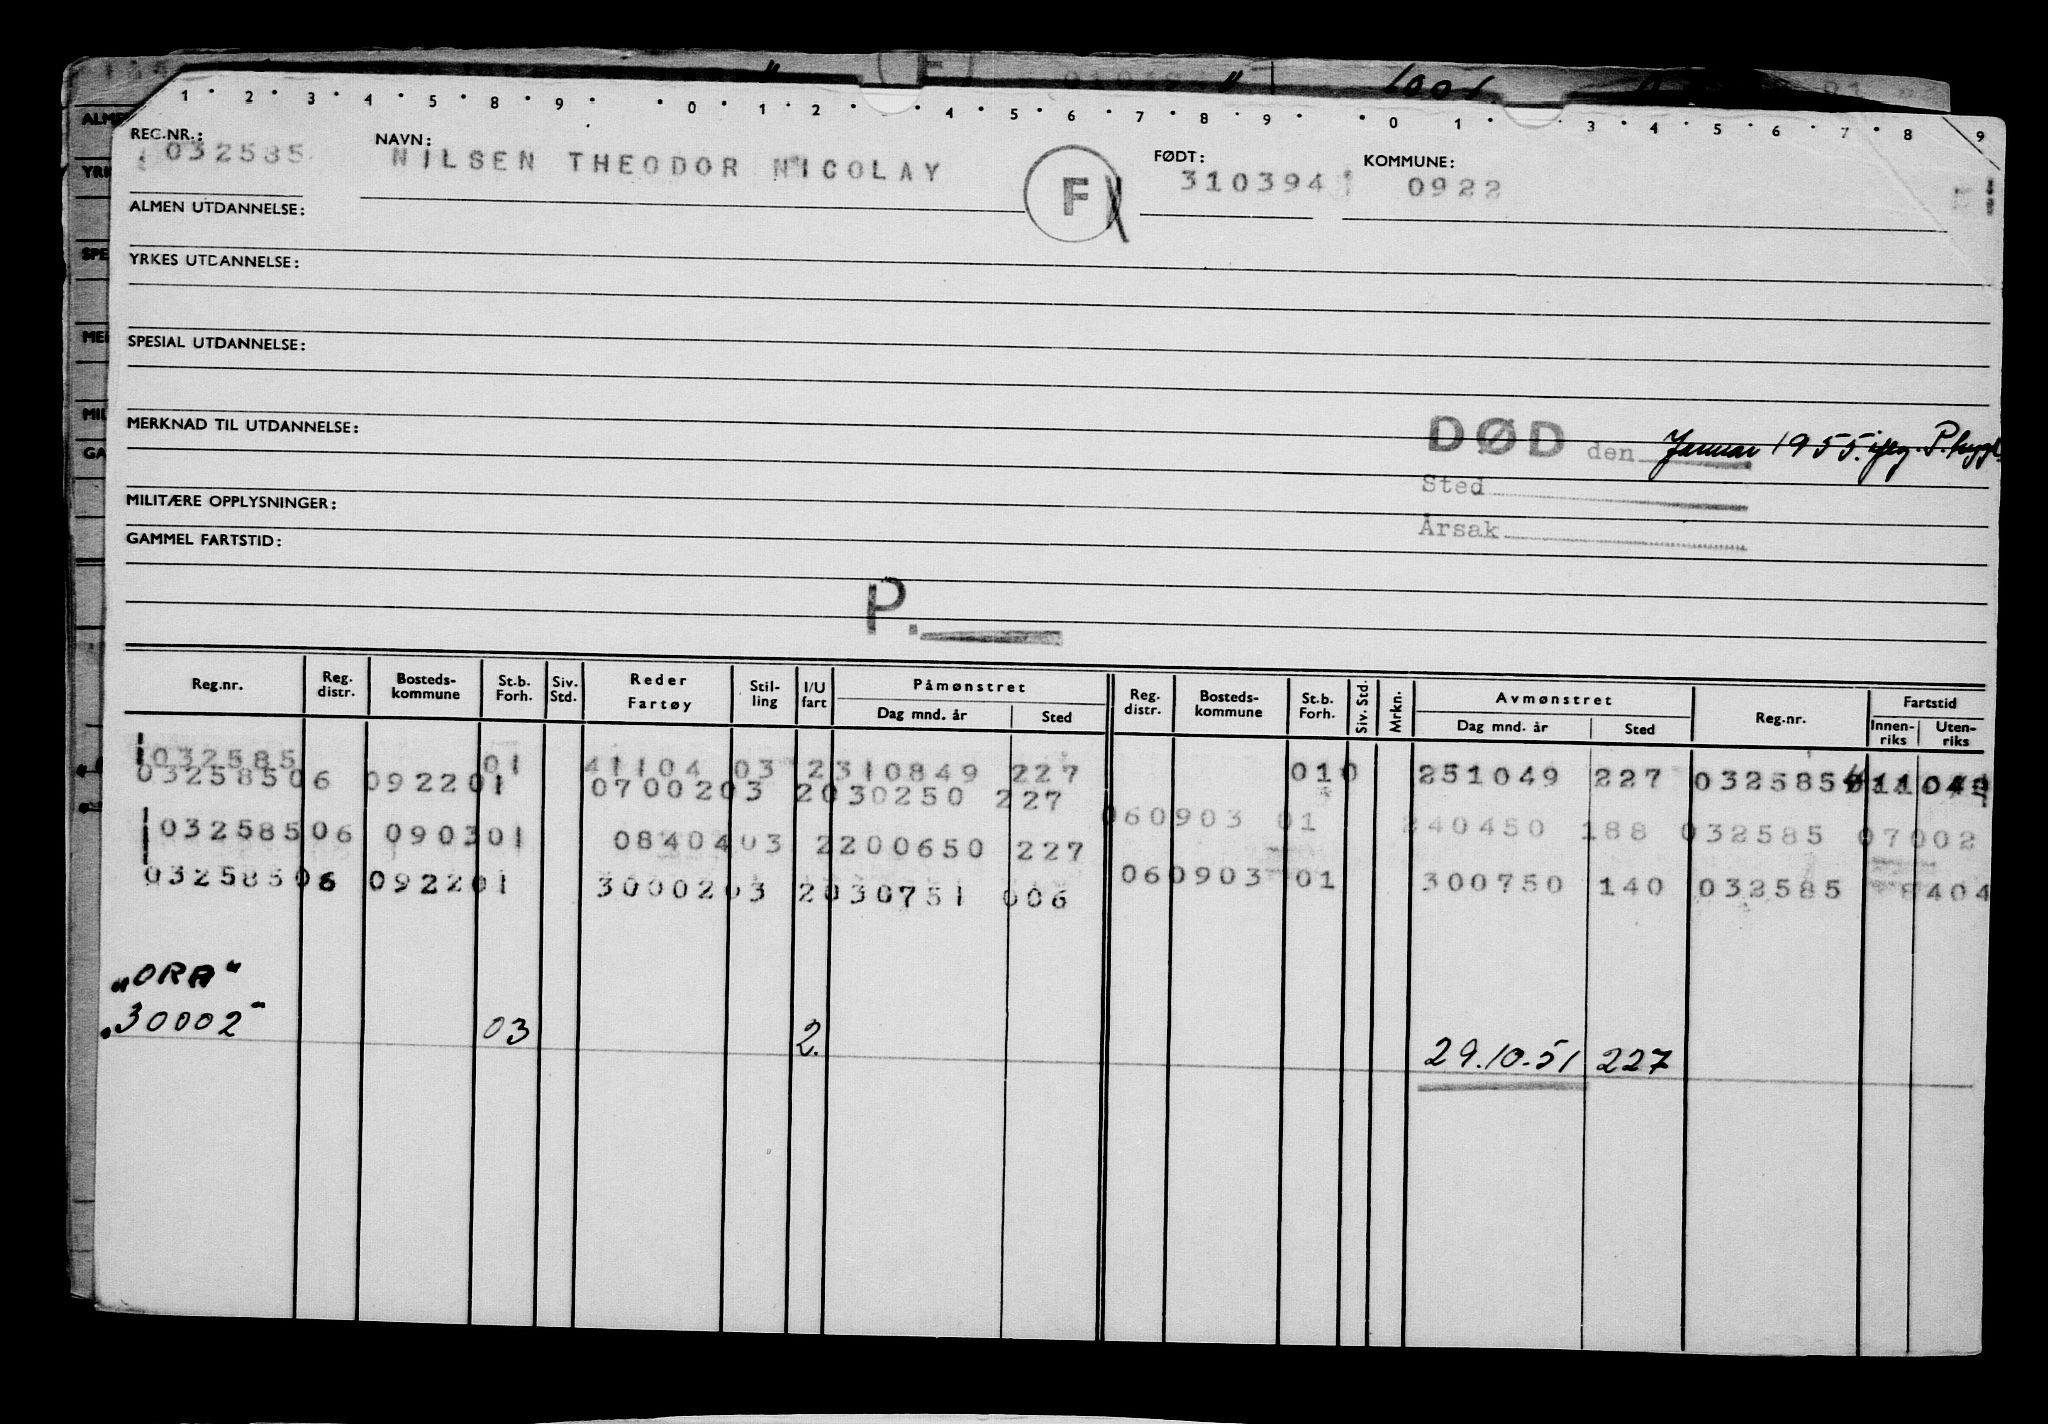 1 · 2 · 3 · 4 · 5 · 8 · 9 · · 0 · 1 · 2 · · 4 · 5 · 6 · 7 · 8 · 9 · · 0 · 1 · · 3 · 4 · 5 · 6 · 7 · 8 · 9
REG.NR.: 032585 NAVN: NILSEN THEODOR NICOLAY F FØDT: 310394 KOMMUNE: 0922
ALMEN UTDANNELSE:
YRKES UTDANNELSE:
SPESIAL UTDANNELSE:
MERKNAD TIL UTDANNELSE:
DØD den Januar 1955. iflg. P.
Sted
MILITÆRE OPPLYSNINGER:
Årsak
GAMMEL FARTSTID:
P.
Reg.nr. Reg. distr. Bosteds- kommune St.b. Forh. Siv. Std. Reder Fartøy Stil- ling I/U fart Påmønstret Dag mnd. år Sted Reg. distr. Bosteds- kommune St.b. Forh. Siv. Std. Mrkn. Avmønstret Dag mnd. år Sted Reg.nr. Fartstid Innen- riks Uten- riks
032585 01 41104 03 2310849 227 010 251049 227 032585
03258506 092201 0700203 2030250 227 060903 01 240450 188 032585 07002
03258506 090301 0840403 2200650 227 060903 01 300750 140 032585 8404
03258506 092201 3000203 2030751 006
„ORA"
„30002" 03 2. 29.10.51 227